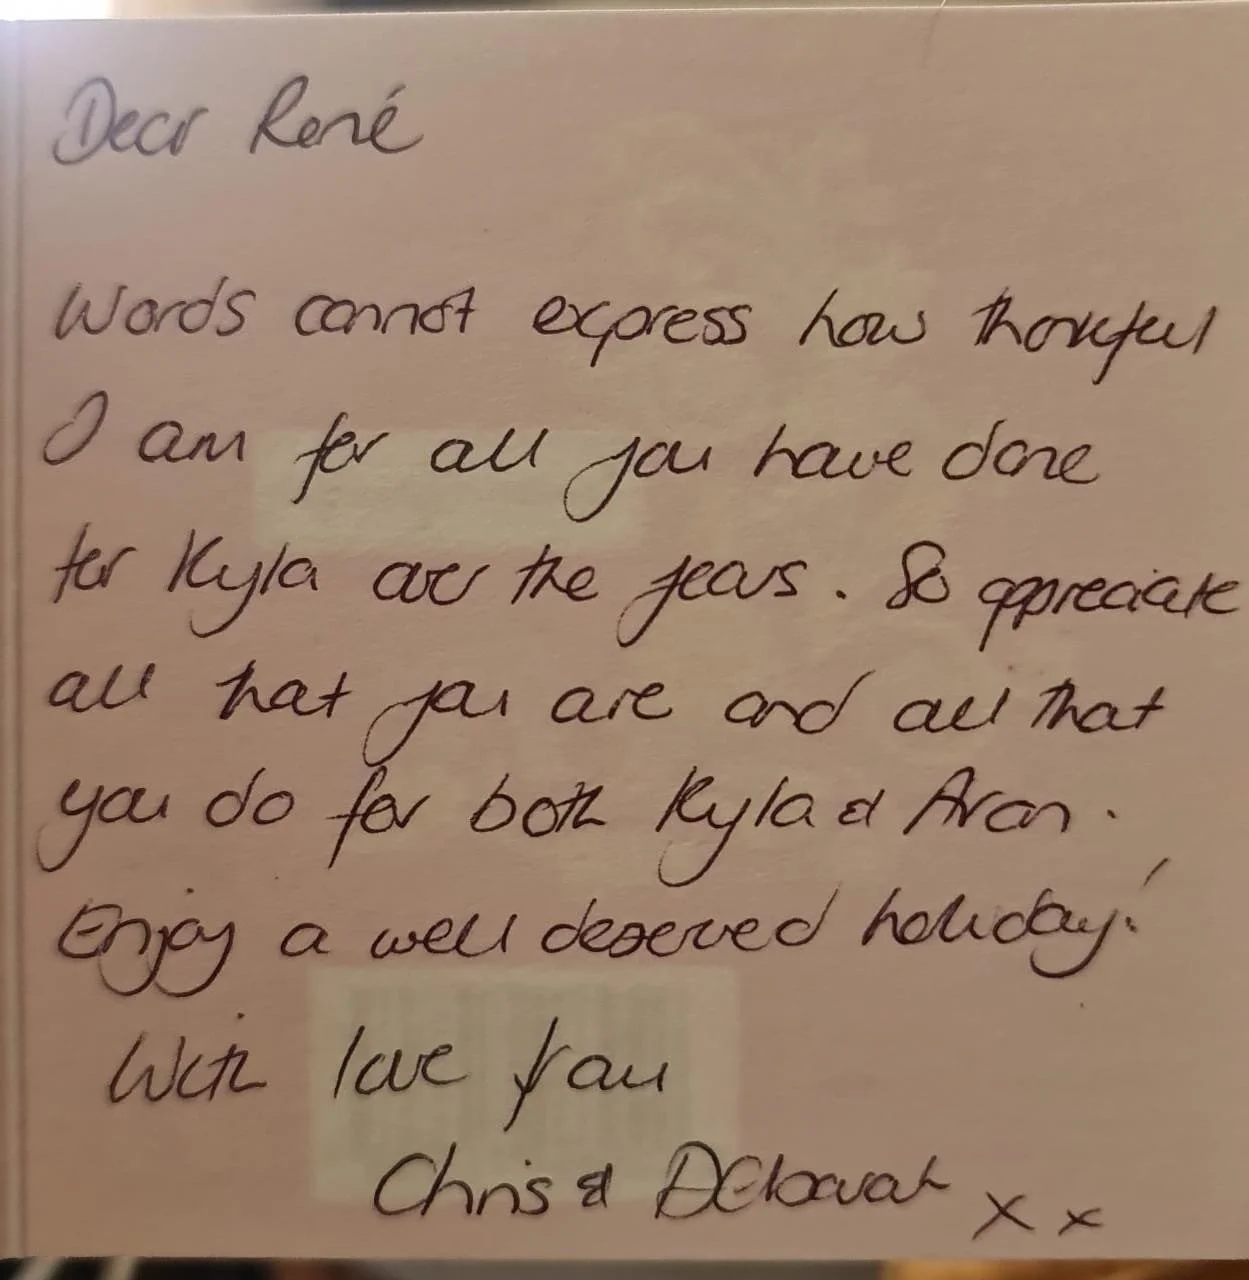 Dear René
Words cannot express how thankful
I am for all you have done
for Kyla over the years. So appreciate
all that you are and all that
you do for both Kyla & Aran.
Enjoy a well deserved holiday!
With love from
Chris & xx